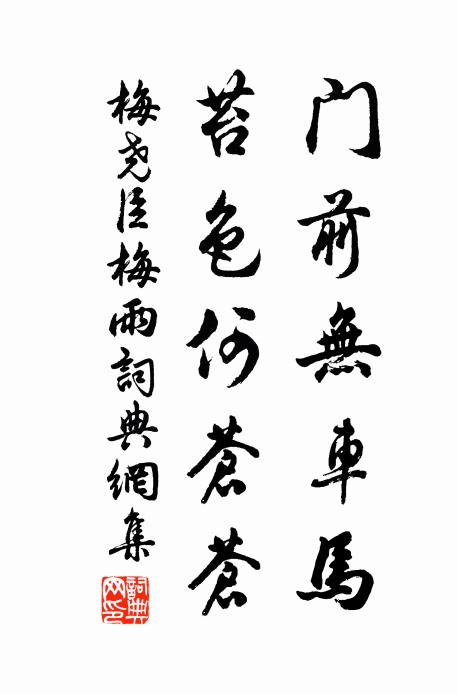 門前無車馬
苔色何蒼蒼
梅尧臣梅雨詞典網集
詞典网印